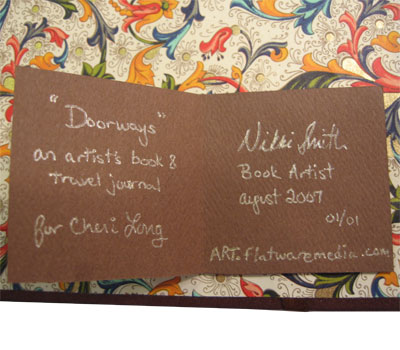 "Doorways"
an artist's book &
travel journal
for Cheri Long
Nikki Smith
Book Artist
august 2007
01/01
ART.flatwaremedia.com